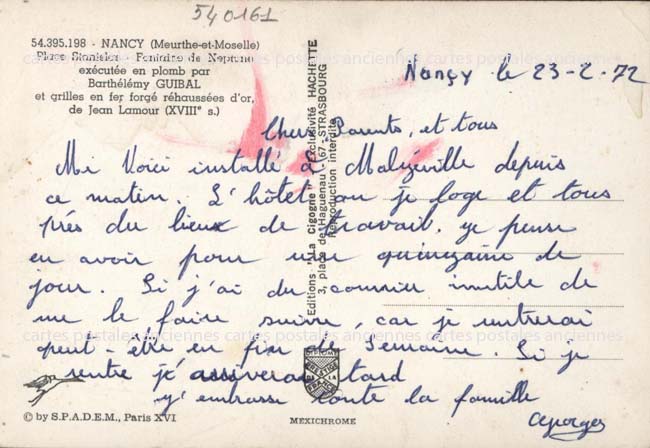 540161
54.395.198 - NANCY (Meurthe-et-Moselle)
Place Stanislas - Fontaine de Neptune
exécutée en plomb par
Barthélémy GUIBAL
et grilles en fer forgé réhaussées d'or,
de Jean Lamour (XVIIIe s.)
cartes postales anciennes cartes postales anciennes
Nançy le 23-2-72
Chers Parents, et tous
Mi Voici installé à Malzéville depuis
ce matin. L'hôtel ou je loge et tous
près du lieux de travail, ye pense
en avoir pour une quinzaine de
jour. Si j'ai du courrier inutile de
me le faire suivre, car je rentrerai
cartes postales anciennes cartes postales anciennes
peut-être en fin de semaine. Si je
rentre j'arriverai tard
j'embrasse toute la famille
Georges
Editions "La Cigogne" Exclusivité HACHETTE
3, place de Haguenau - 67 - STRASBOURG
Reproduction interdite
© by S.P.A.D.E.M., Paris XVI
MEXICHROME